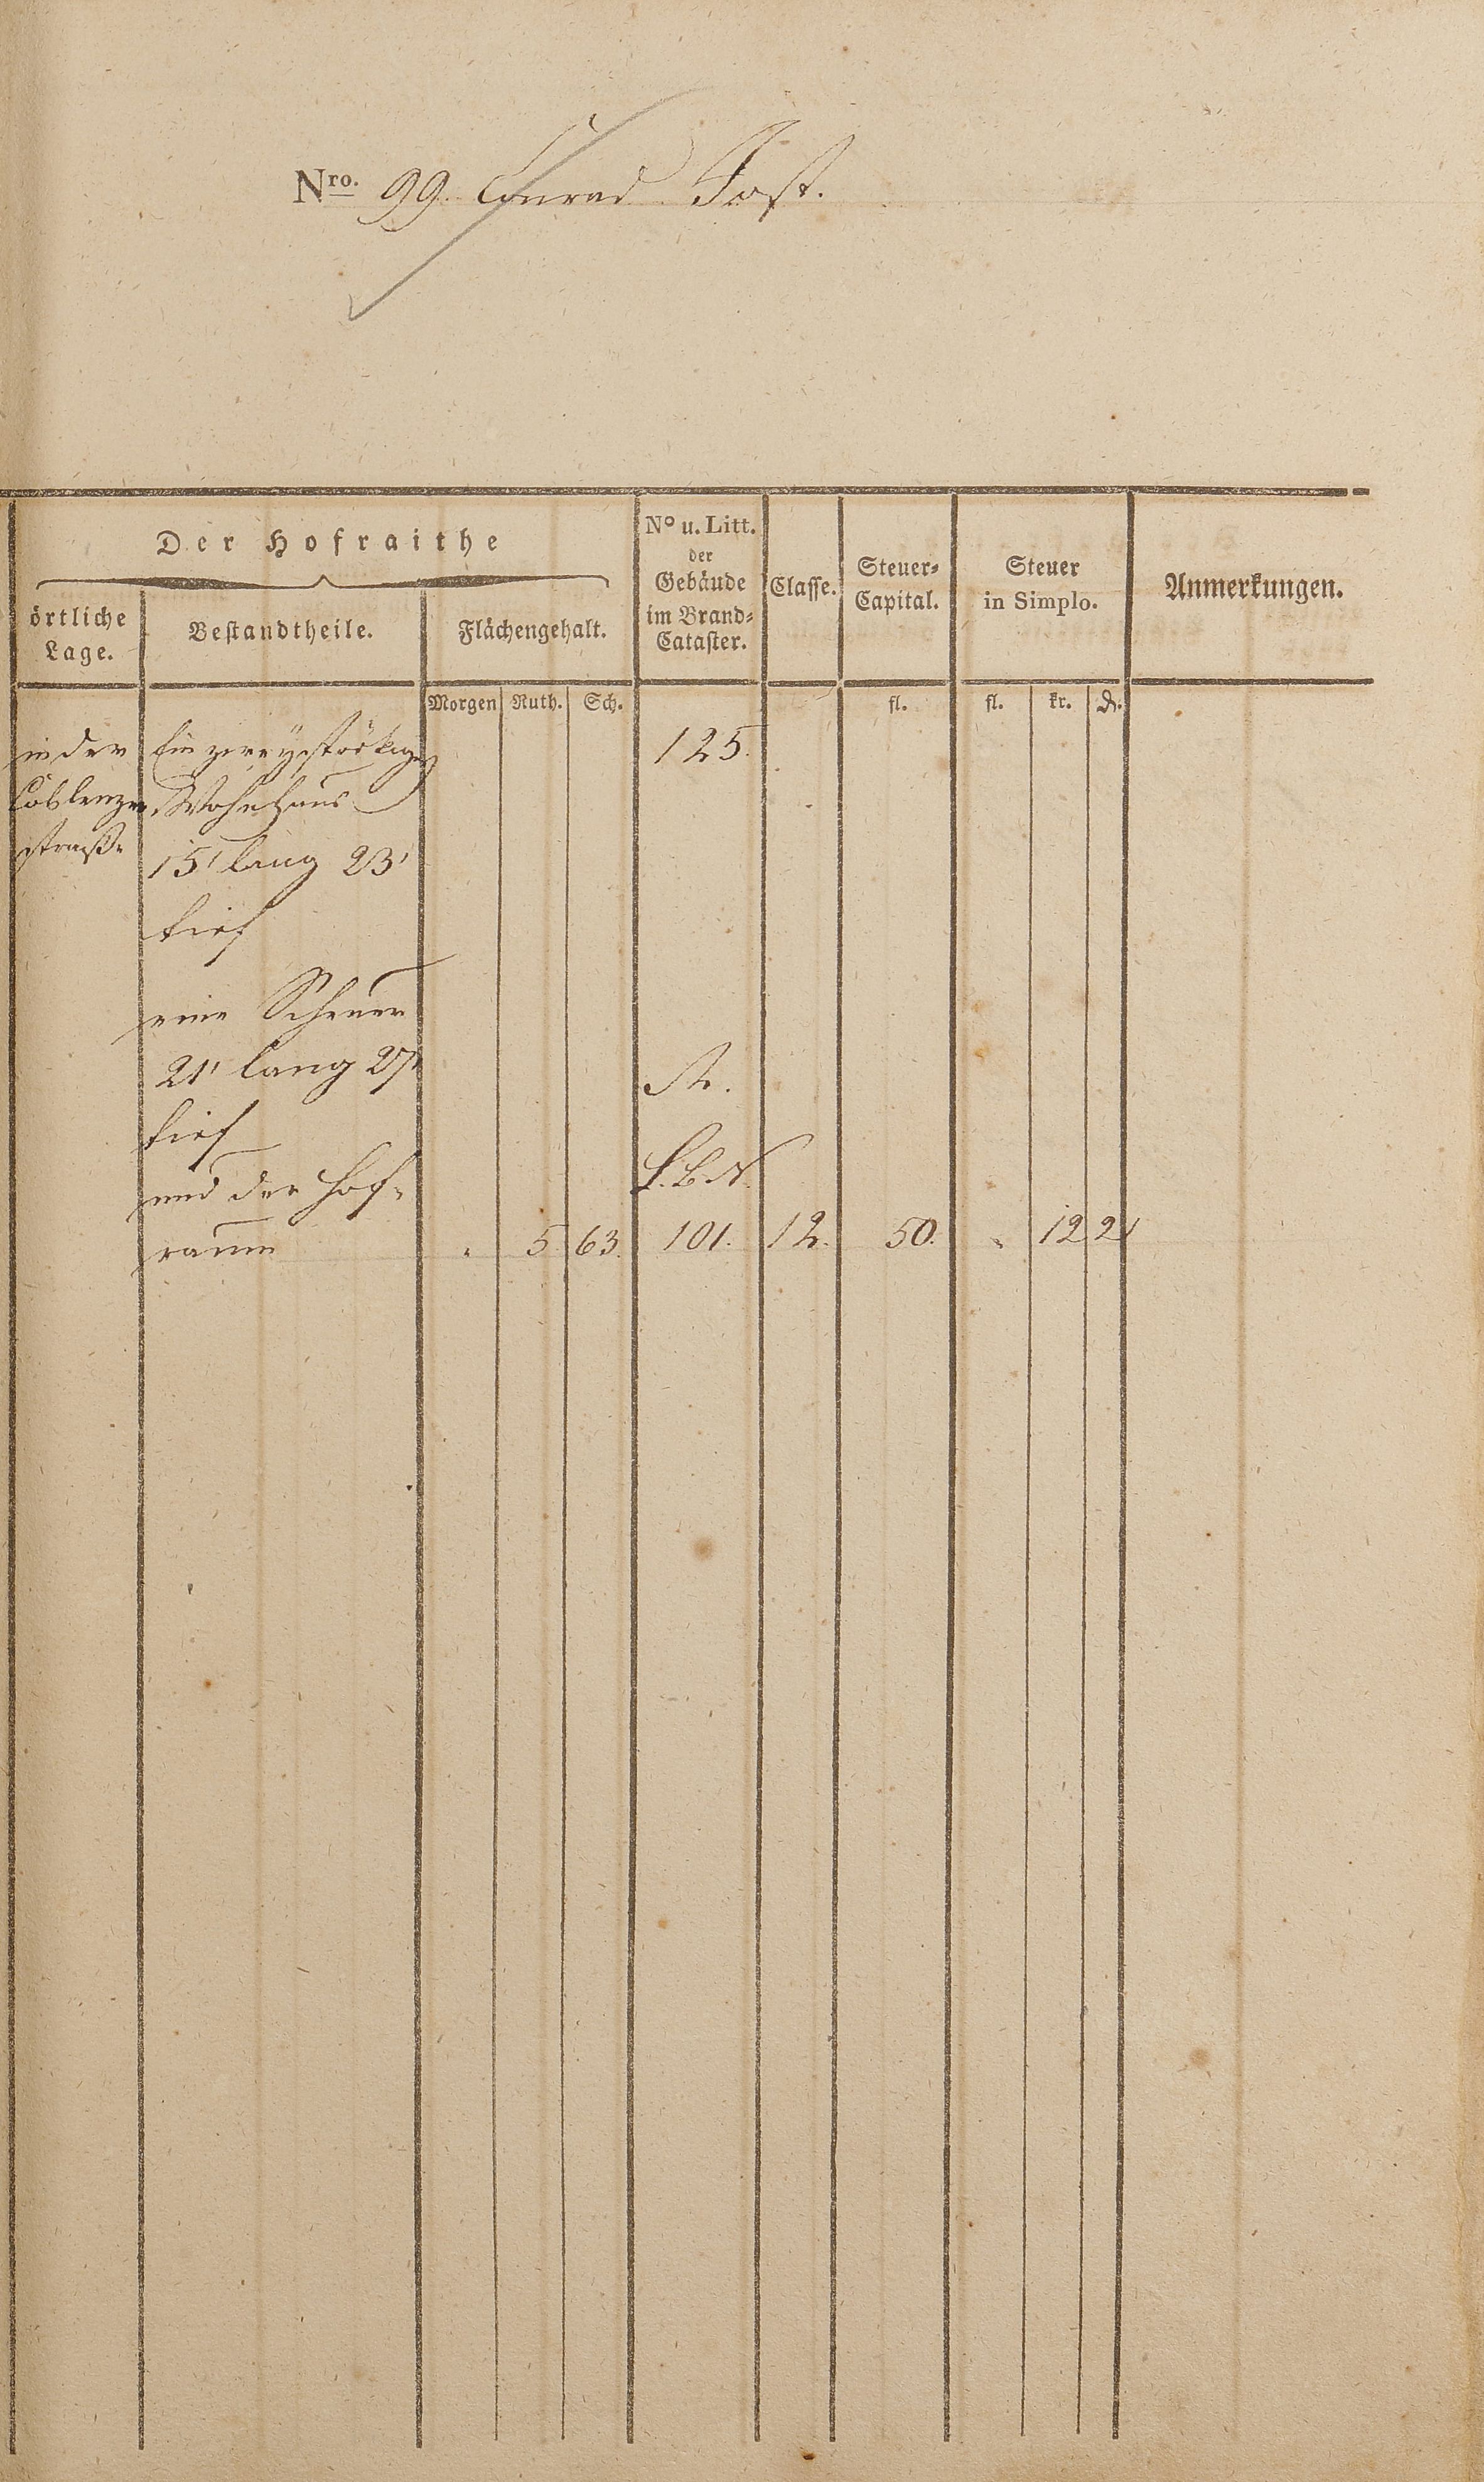 Nro. 99. Conrad Jost.
Der Hofraithe
No u. Litt.
der
Gebäude
im Brand-
Cataster.
Classe.
Steuer-
Capital.
Steuer
in Simplo.
Anmerkungen.
örtliche
Lage.
Bestandtheile.
Flächengehalt.
Morgen Ruth. Sch. fl. fl. kr. d.
in der Ein zweystöckiges 125.
Coblenzer Wohnhaus
straße 15' lang 23'
tief
eine Scheuer
21' lang 27'
tief
und der Hof-
raum " 5. 63. 101. 12. 50. " 12 2